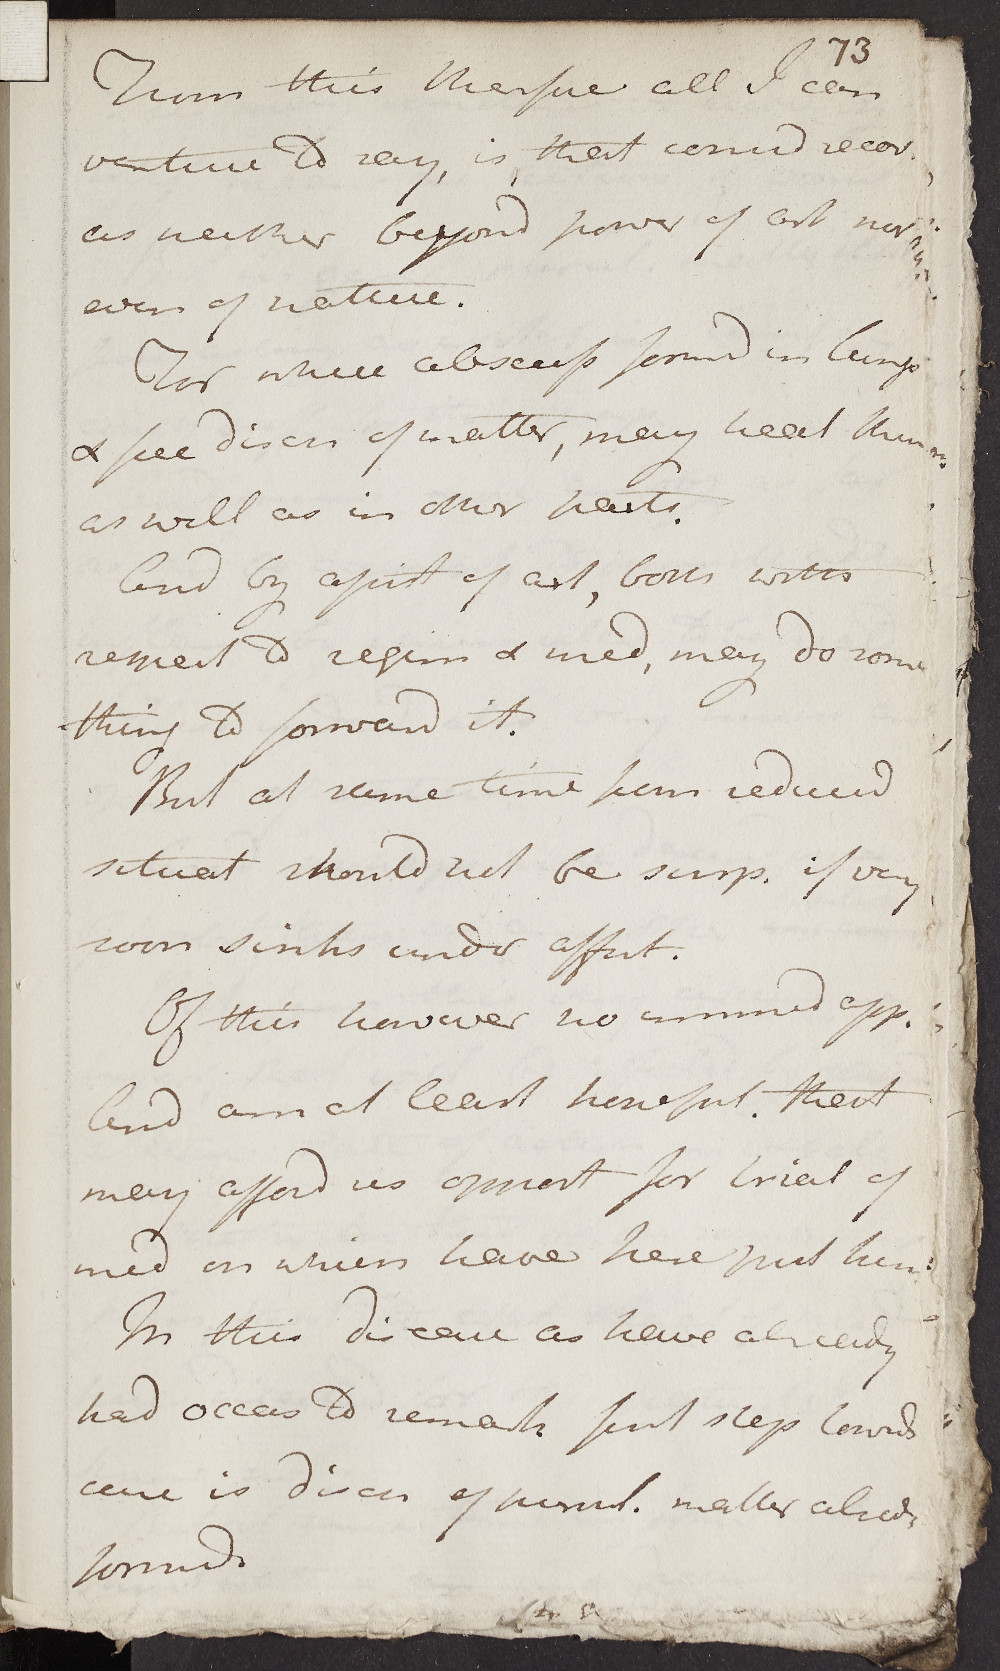 73
From this therefore all I can
venture to say, is, that consid recov.
as neither beyond power of art nor
even of nature.
For where abscess formd in lungs
& free disch of matter, may heal there
as well as in other parts.
And by assist of art, both with
respect to regim & med, may do some
thing to forward it.
But at same time from reduced
situat should not be surp. if very
soon sinks under affect.
Of this however no immed app.
And am at least hopeful. that
may afford us opport for trial of
med on which have here put him
In this disease as have already
had occas to remark first step towrds
cure is disch of purul. matter alredy
formd